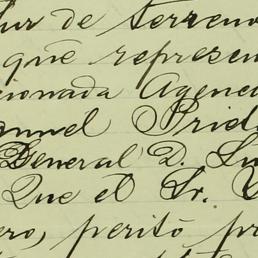 lur de terreno
que represen
cionada Agenci
anuel Prid
General D. Lu
Que el Sr.
ero, perito pr